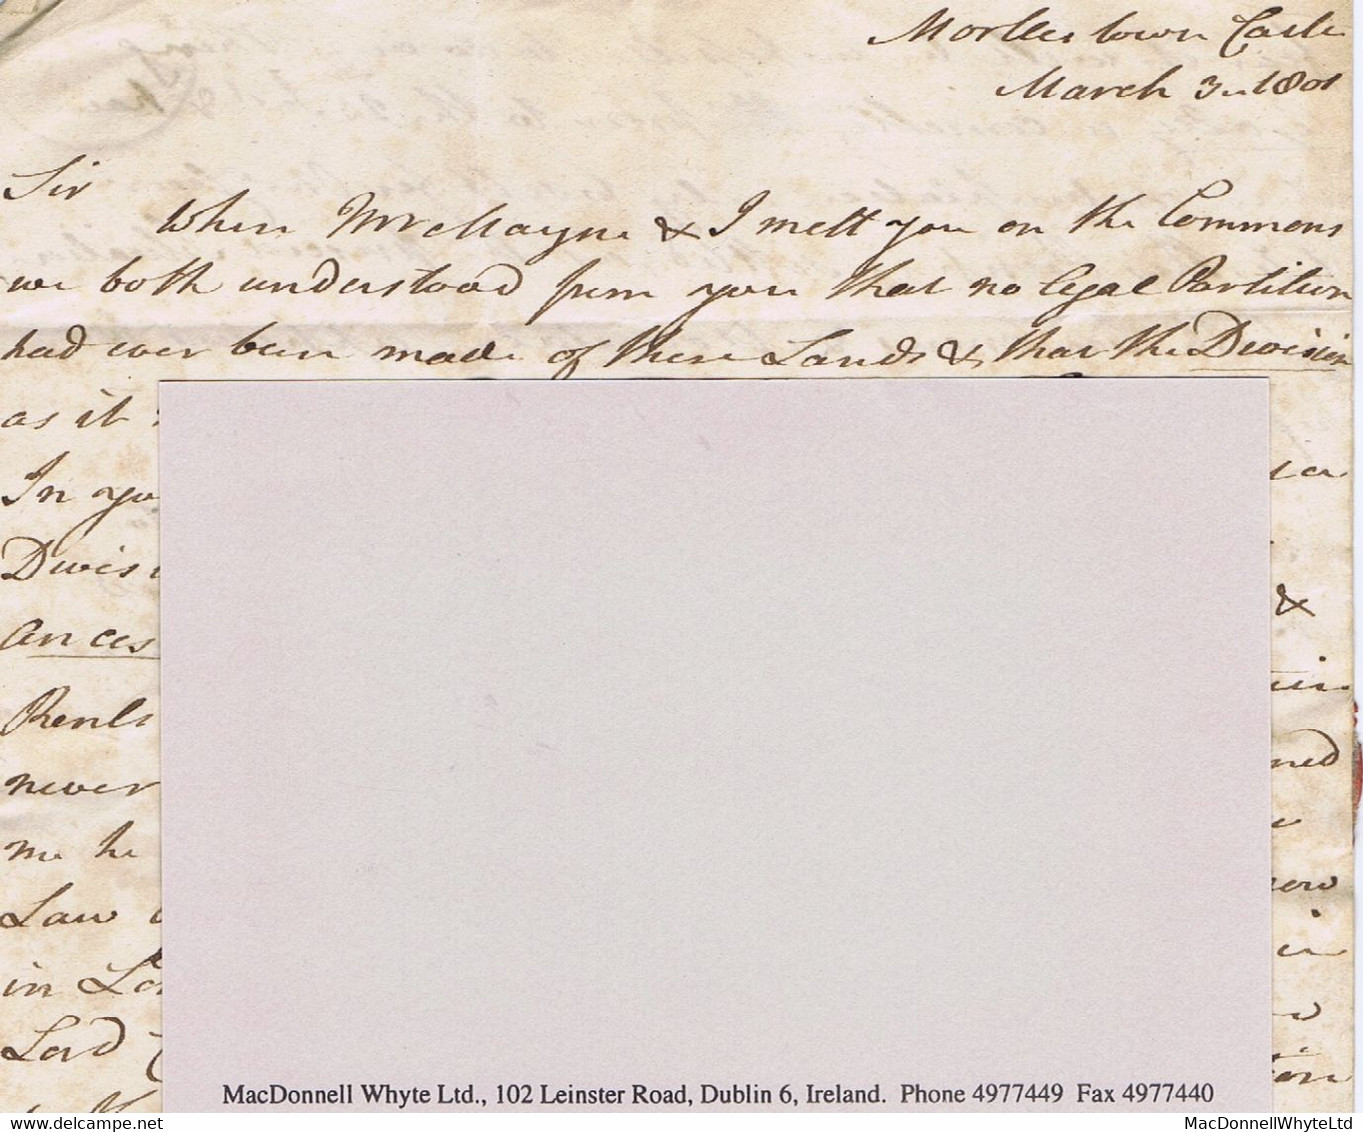 Morlestown Castle
March 3d 1801
Sir
When Mr Mayne & I mett you on the Commons
we both understood from you that no legal Partition
had ever been made of these Lands & that the Division
as it
In you
Divis
Ances
&
Rents
never
ned
me he
Law
now
in
in Lo
Lord
MacDonnell Whyte Ltd., 102 Leinster Road, Dublin 6, Ireland. Phone 4977449 Fax 4977440
MacDonnellWhyteLtd